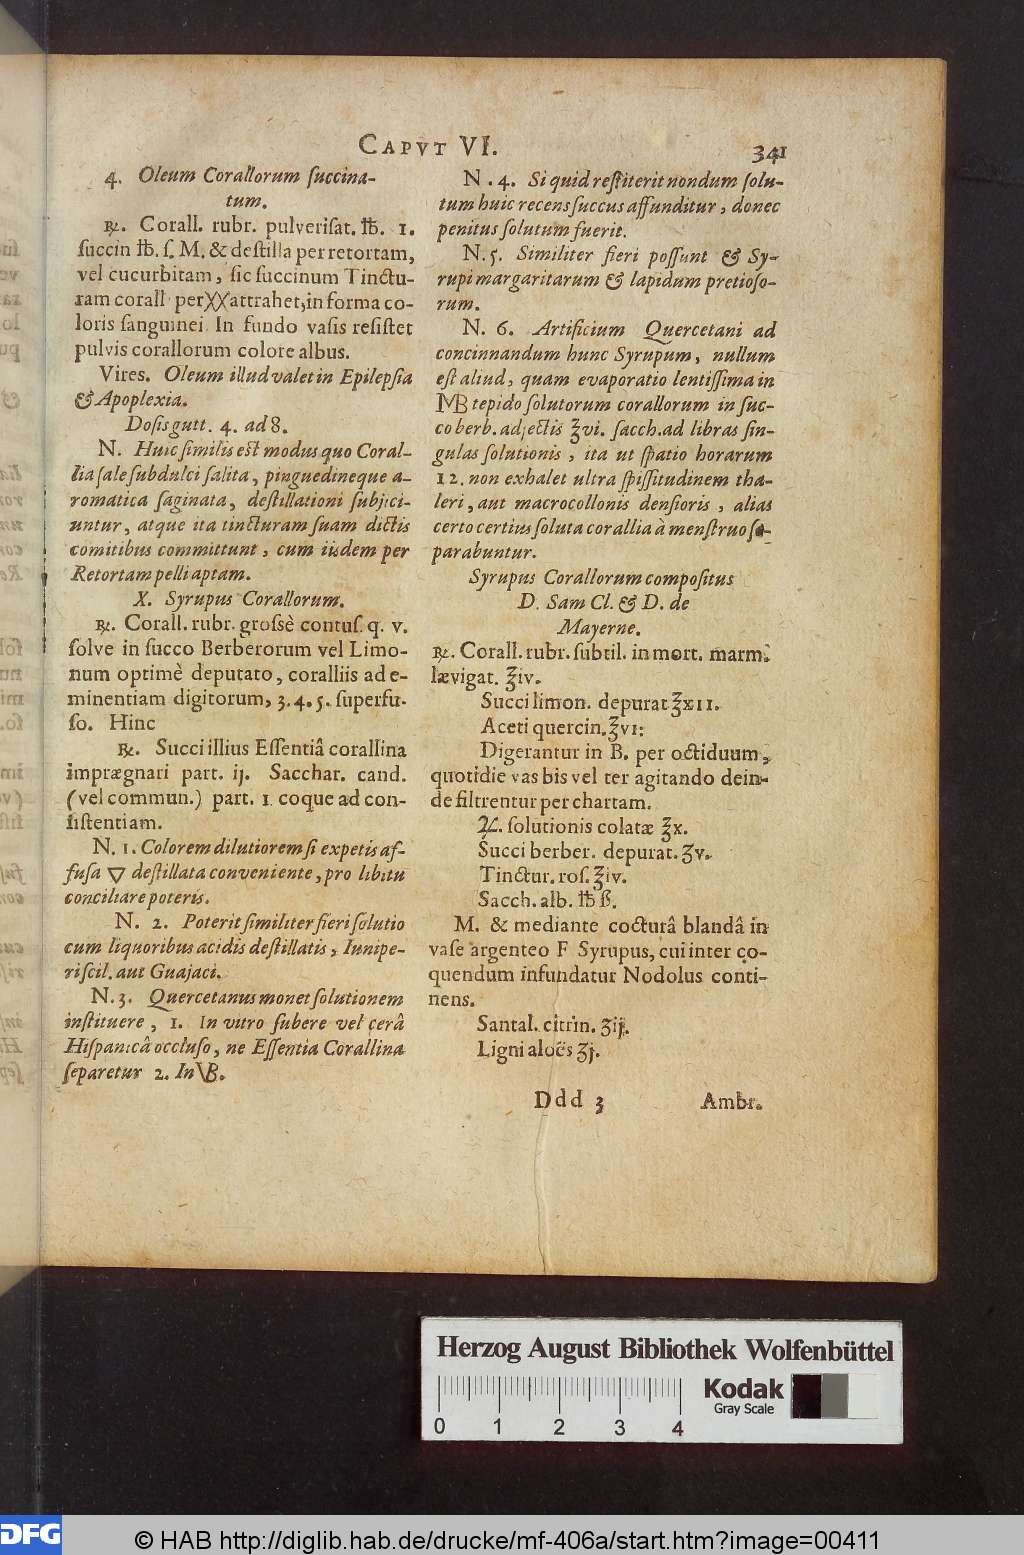 CAPVT VI. 341
4. Oleum Corallorum ſuccina-
tum.
℞. Corall. rubr. pulveriſat. ℔. 1.
ſuccin ℔. ſ. M. & deſtilla per retortam,
vel cucurbitam, ſic ſuccinum Tinctu-
ram corall per XX attrahet, in forma co-
loris ſanguinei In fundo vaſis reſiſtet
pulvis corallorum colore albus.
Vires. Oleum illud valet in Epilepſia
& Apoplexia.
Doſis gutt. 4. ad 8.
N. Huic ſimilis eſt modus quo Coral-
lia ſale ſubdulci ſalita, pinguedineque a-
romatica ſaginata, deſtillationi ſubjici-
untur, atque ita tincturam ſuam dictis
comitibus committunt, cum iisdem per
Retortam pelli aptam.
X. Syrupus Corallorum.
℞. Corall. rubr. groſsè contuſ. q. v.
ſolve in ſucco Berberorum vel Limo-
num optimè deputato, coralliis ad e-
minentiam digitorum, 3. 4. 5. ſuperfu-
ſo. Hinc
℞. Succi illius Eſſentiâ corallina
imprægnari part. ij. Sacchar. cand.
(vel commun.) part. 1 coque ad con-
ſiſtentiam.
N. 1. Colorem dilutiorem ſi expetis af-
fuſa ▽ deſtillata conveniente, pro libitu
conciliare poteris.
N. 2. Poterit ſimiliter fieri ſolutio
cum liquoribus acidis deſtillatis, Iunipe-
ri ſcil. aut Guajaci.
N. 3. Quercetanus monet ſolutionem
inſtituere, 1. In vitro ſubere vel cerâ
Hiſpanicâ occluſo, ne Eſſentia Corallina
ſeparetur 2. In B.
N. 4. Si quid reſtiterit nondum ſolu-
tum huic recens ſuccus affunditur, donec
penitus ſolutum fuerit.
N. 5. Similiter fieri poſſunt & Sy-
rupi margaritarum & lapidum pretioſo-
rum.
N. 6. Artificium Quercetani ad
concinnandum hunc Syrupum, nullum
eſt aliud, quam evaporatio lentiſſima in
MB tepido ſolutorum corallorum in ſuc-
co berb. adjectis ℥vi. ſacch. ad libras ſin-
gulas ſolutionis, ita ut ſpatio horarum
12. non exhalet ultra ſpiſſitudinem tha-
leri, aut macrocollonis denſioris, alias
certo certius ſoluta corallia à menſtruo ſe-
parabuntur.
Syrupus Corallorum compoſitus
D. Sam Cl. & D. de
Mayerne.
℞. Corall. rubr. ſubtil. in mort. marm.
lævigat. ℥iv.
Succi limon. depurat ℥xII.
Aceti quercin. ℥vI:
Digerantur in B. per octiduum,
quotidie vas bis vel ter agitando dein-
de filtrentur per chartam.
℞. ſolutionis colatæ ℥x.
Succi berber. depurat. ℥v.
Tinctur. roſ. ℥iv.
Sacch. alb. ℔ ß.
M. & mediante cocturâ blandâ in
vaſe argenteo F Syrupus, cui inter co-
quendum infundatur Nodolus conti-
nens.
Santal. citrin. ʒij.
Ligni aloës ʒj.
Ddd 3 Ambr.
Herzog August Bibliothek Wolfenbüttel
Kodak
Gray Scale
0 1 2 3 4
DFG © HAB http://diglib.hab.de/drucke/mf-406a/start.htm?image=00411